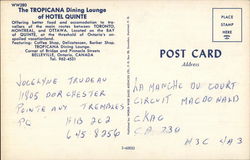 WW280
The TROPICANA Dining Lounge
of HOTEL QUINTE
Offering better food and accommodation to tra-
vellers of the main routes between TORONTO,
MONTREAL, and OTTAWA. Located on the BAY
of QUINTE, at the threshold of Ontario's un-
spoiled vacationland.
Featuring: Coffee Shop, Gentlemens, Barber Shop,
TROPICANA Dining Lounge.
Corner of Bridge and Pinnacle Streets
BELLEVILLE, Ontario, CANADA
Tel. 962-4531
PLACE
STAMP
HERE
POST CARD
Address
JOCELYNE TRUDEAU
1805 DORCHESTER
POINTE AUX TREMBLES
PQ H1B 2C2
645 8256
LA MANCHE DU COURT
CIRCUIT MACDONALD
CRAG
CA 730
H3C 4A3